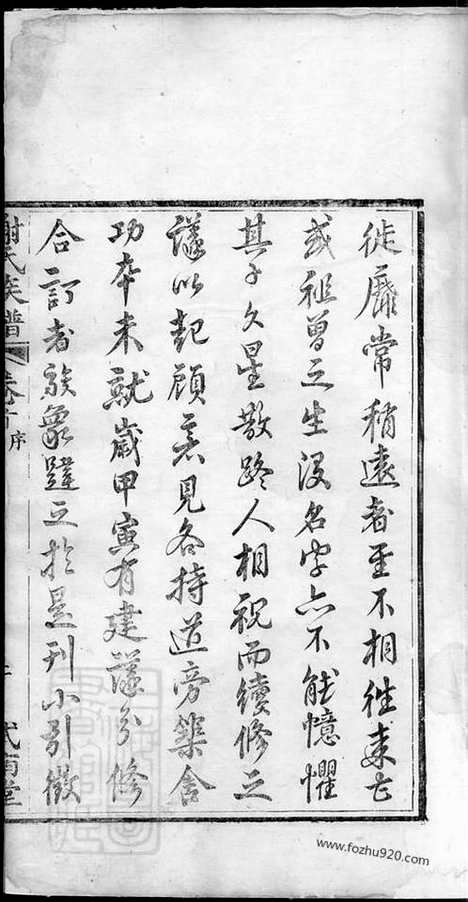 徙靡常稍遠者至不相往來亡
或祖曾之生沒名字亦不能憶懼
其子久星散路人相視而續修之
議以起顧意見各持道旁築舍
功卒未就歲甲寅有建議分修
合訂者族眾韙之於是刊小引徵
謝氏族譜
序
www.fozhu920.com